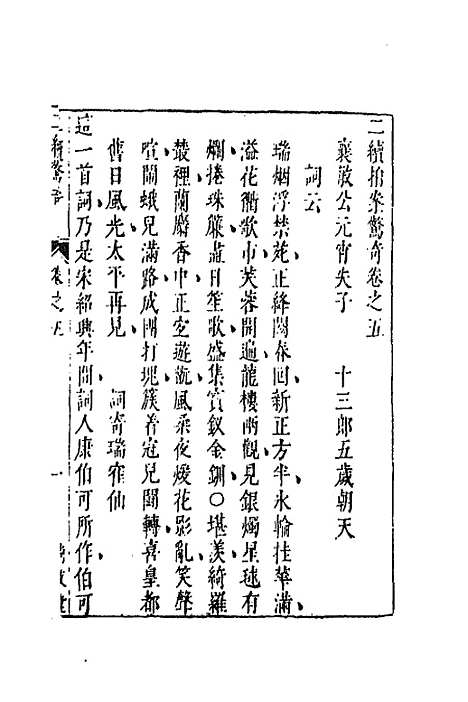 二續拍案驚奇卷之五
襄敏公元宵失子　十三郎五歲朝天
詞云
瑞烟浮禁苑正絳闕春回新正方半氷輪桂華滿
溢花衢歌市芙蓉開遍龍樓兩觀見銀燭星毬有
爛捲珠簾盡日笙歌盛集寳釵金釧○堪羡綺羅
叢裡蘭麝香中正宜遊翫風柔夜煖花影亂笑聲
喧鬧蛾兒滿路成團打塊簇着冠兒鬪轉喜皇都
舊日風光太平再見　詞寄瑞鶴仙
這一首詞乃是宋紹興年間詞人康伯可所作伯可
二續驚奇　卷之五　一